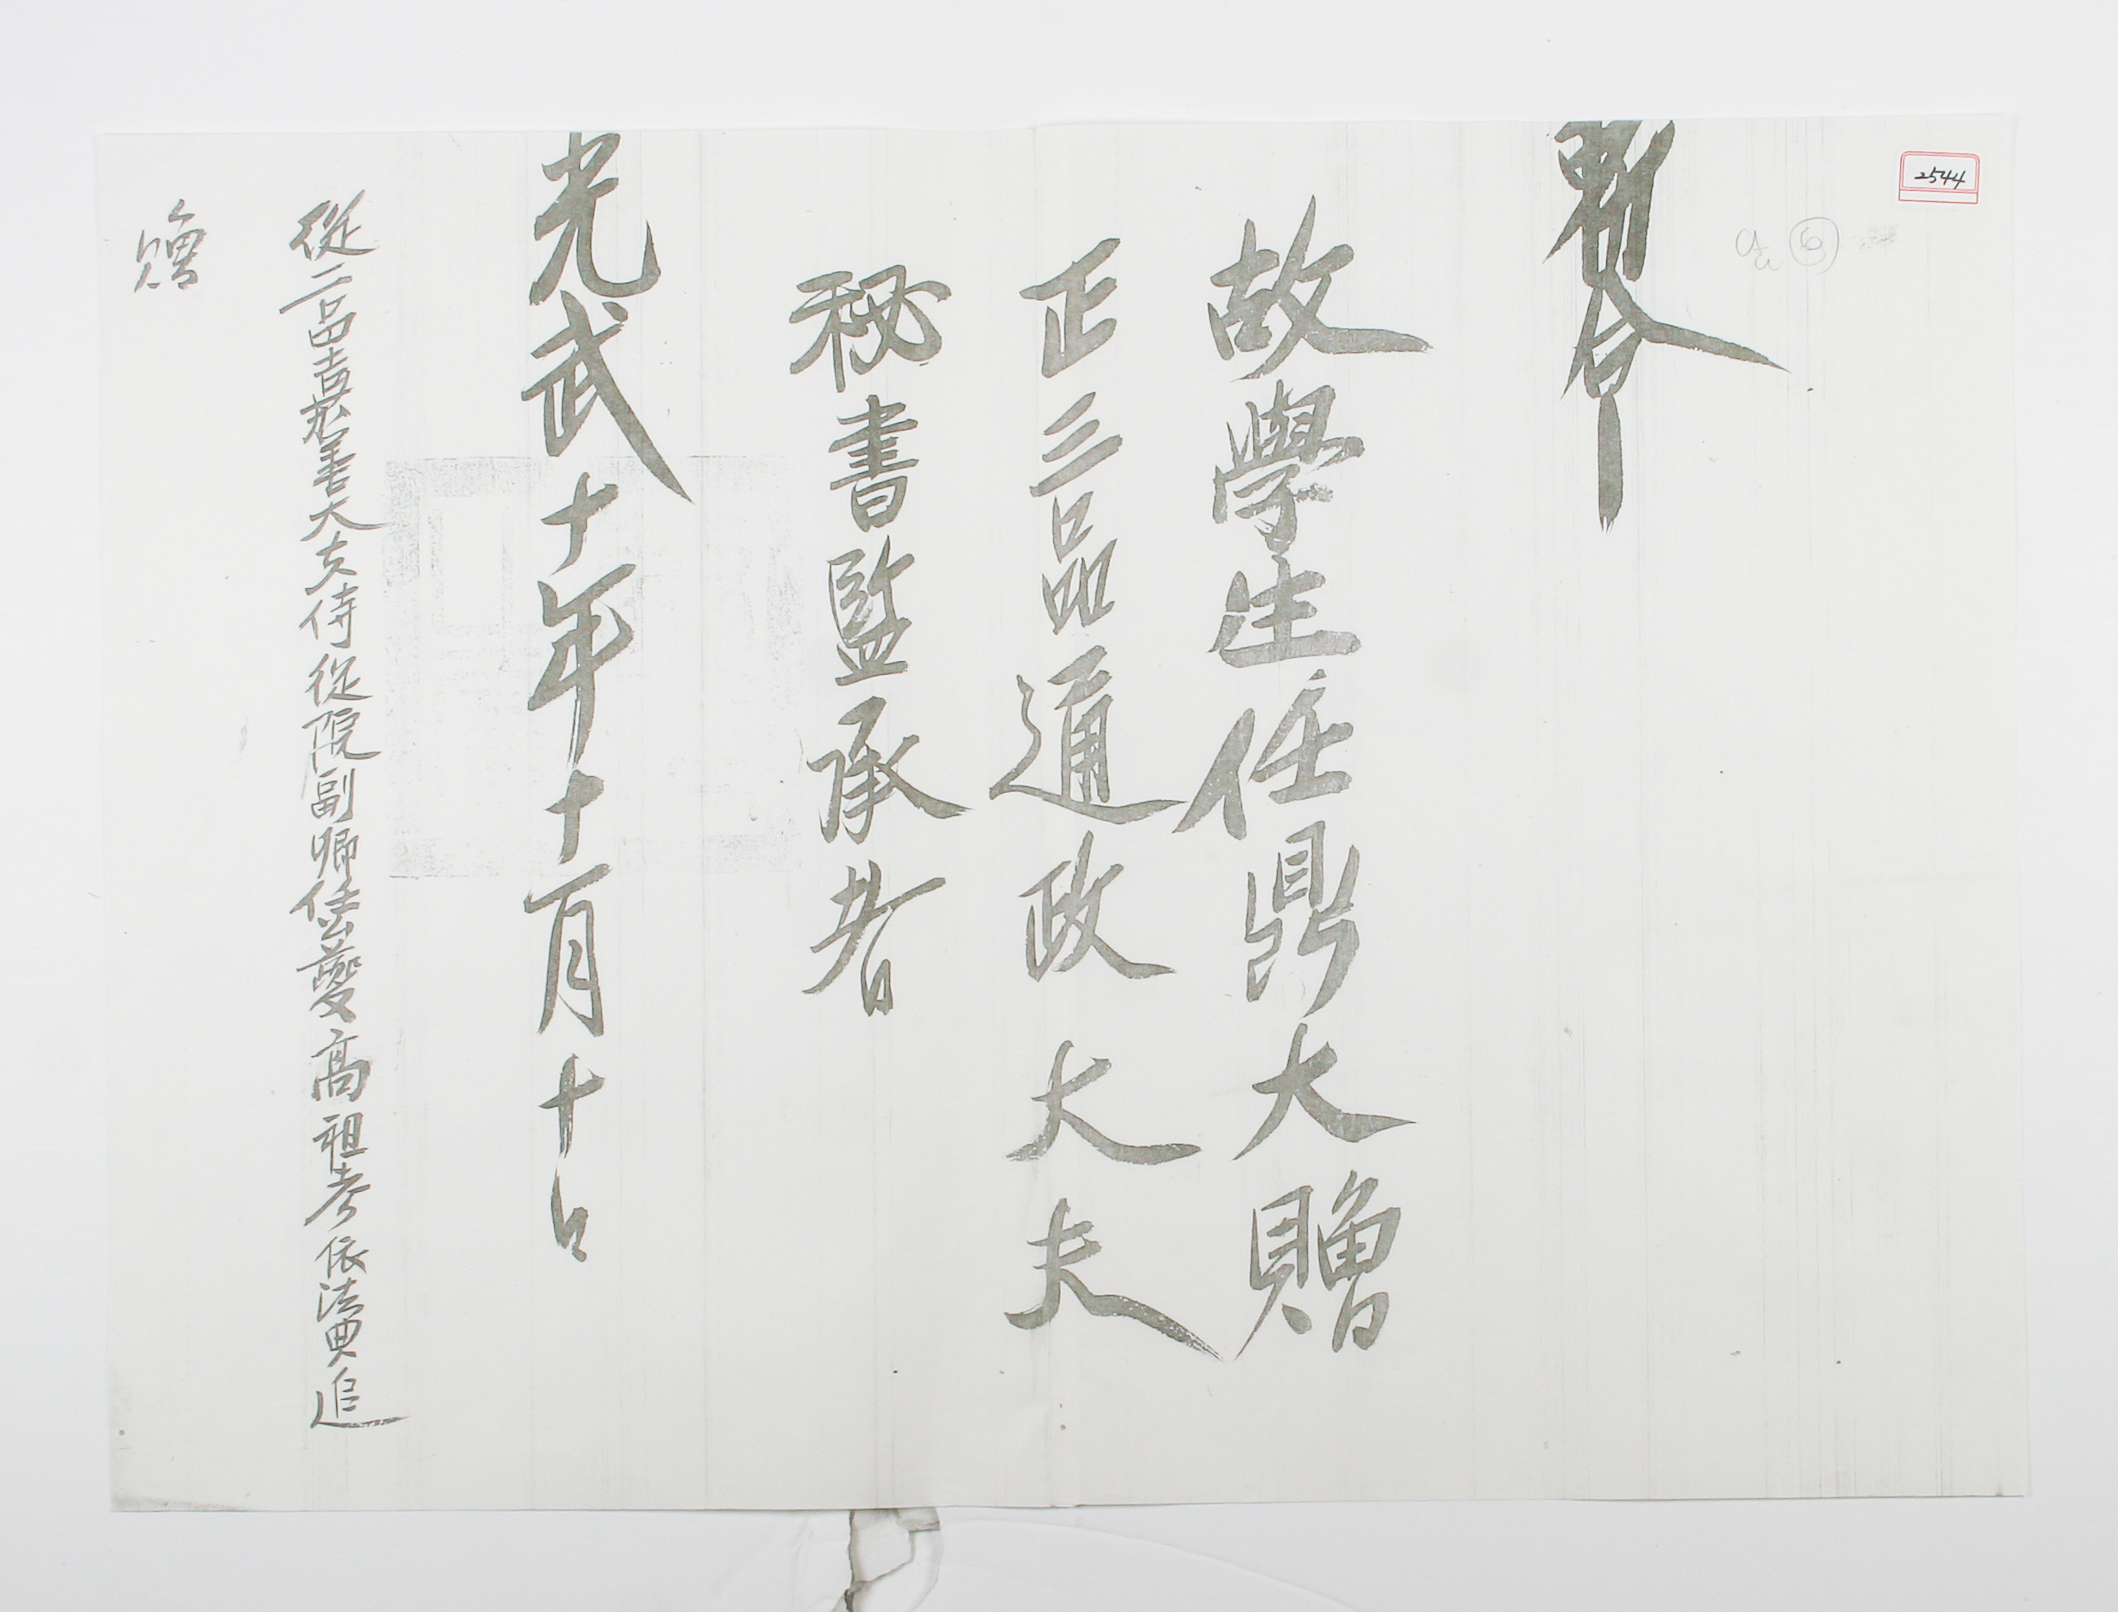 勅命
2544
故學生任鼎大贈
正三品通政大夫
秘書監丞者
光武十年十月十日
從二品嘉善大夫侍從院副卿任公爕高祖考依法典追
贈